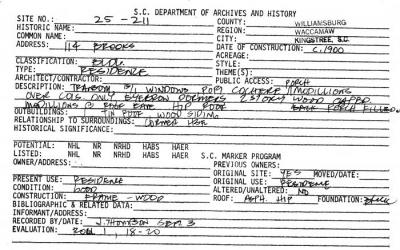 S.C. DEPARTMENT OF ARCHIVES AND HISTORY
SITE NO.: 25-211 COUNTY: WILLIAMSBURG
HISTORIC NAME: REGION: WACCAMAW
COMMON NAME: CITY: KINGSTREE, S.C.
ADDRESS: 114 BROOKS DATE OF CONSTRUCTION: C.1900
ACREAGE:
CLASSIFICATION: BLDG. STYLE:
TYPE: RESIDENCE THEME(S):
ARCHITECT/CONTRACTOR: PUBLIC ACCESS: PORCH
DESCRIPTION: TRANSOM 3/1 WINDOWS PORT COCHERE MODILLIONS
OVER COLS. ONLY EYEBROW DORMERS 2 STORY WOOD
MODILLIONS @ ROOF HIP ROOF BACK PORCH FILLED
OUTBUILDINGS: TIN ROOF, WOOD SIDING
RELATIONSHIP TO SURROUNDINGS: CORNER
HISTORICAL SIGNIFICANCE:
POTENTIAL: NHL NR NRHD HABS HAER
LISTED: NHL NR NRHD HABS HAER S.C. MARKER PROGRAM
OWNER/ADDRESS: PREVIOUS OWNERS:
ORIGINAL SITE: YES MOVED/DATE:
PRESENT USE: RESIDENCE ORIGINAL USE: RESIDENCE
CONDITION: GOOD ALTERED/UNALTERED: NO
CONSTRUCTION: FRAME-WOOD ROOF: ASPH. HIP FOUNDATION: BRICK
BIBLIOGRAPHIC & RELATED DATA:
INFORMANT/ADDRESS:
RECORDED BY/DATE: J. THOMPSON SEP 3
EVALUATION: ROLL 1, 18-20